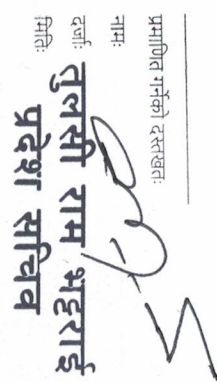 प्रमाणित गर्नेको दस्तखतः
नामः
दर्जाः
मितिः
तुलसी राम भट्टराई
प्रदेश सचिव